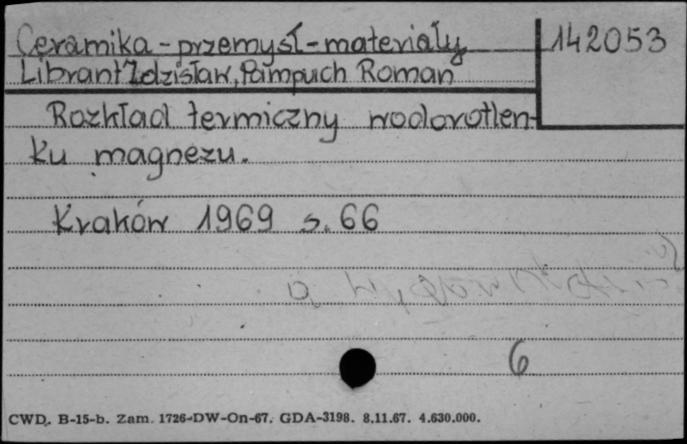 Ceramika - przemysł - materiały
142053
Librant Zdzisław, Pampuch Roman
Rozkład termiczny wodorotlen-
ku magnezu.
Kraków 1969 s. 66
6
CWD. B-15-b. Zam. 1726-DW-On-67. GDA-3198. 8.11.67. 4.630.000.